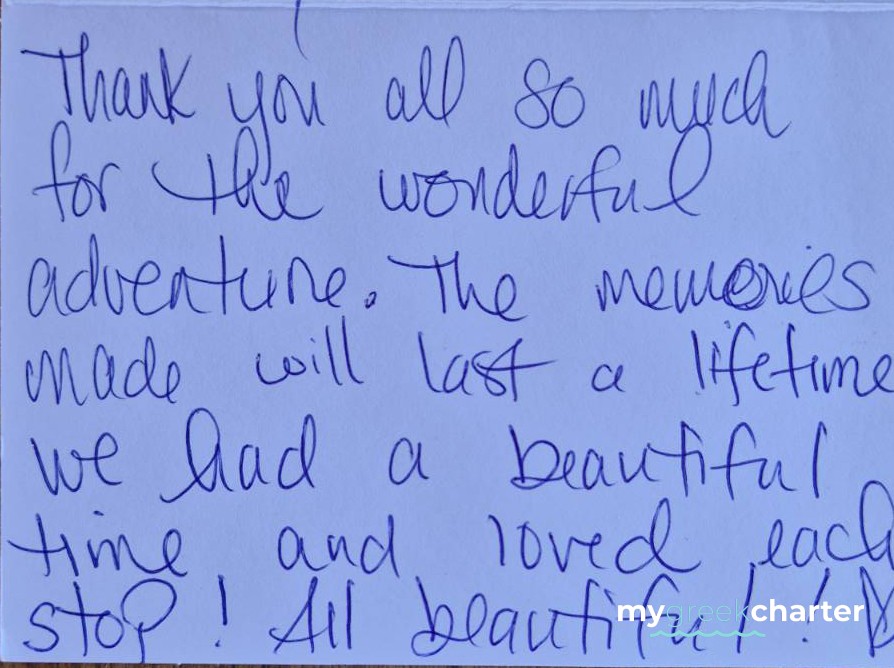 Thank you all so much
for the wonderful
adventure. The memories
made will last a lifetime
we had a beautiful
time and loved each
stop! All beautiful!
mygreekcharter